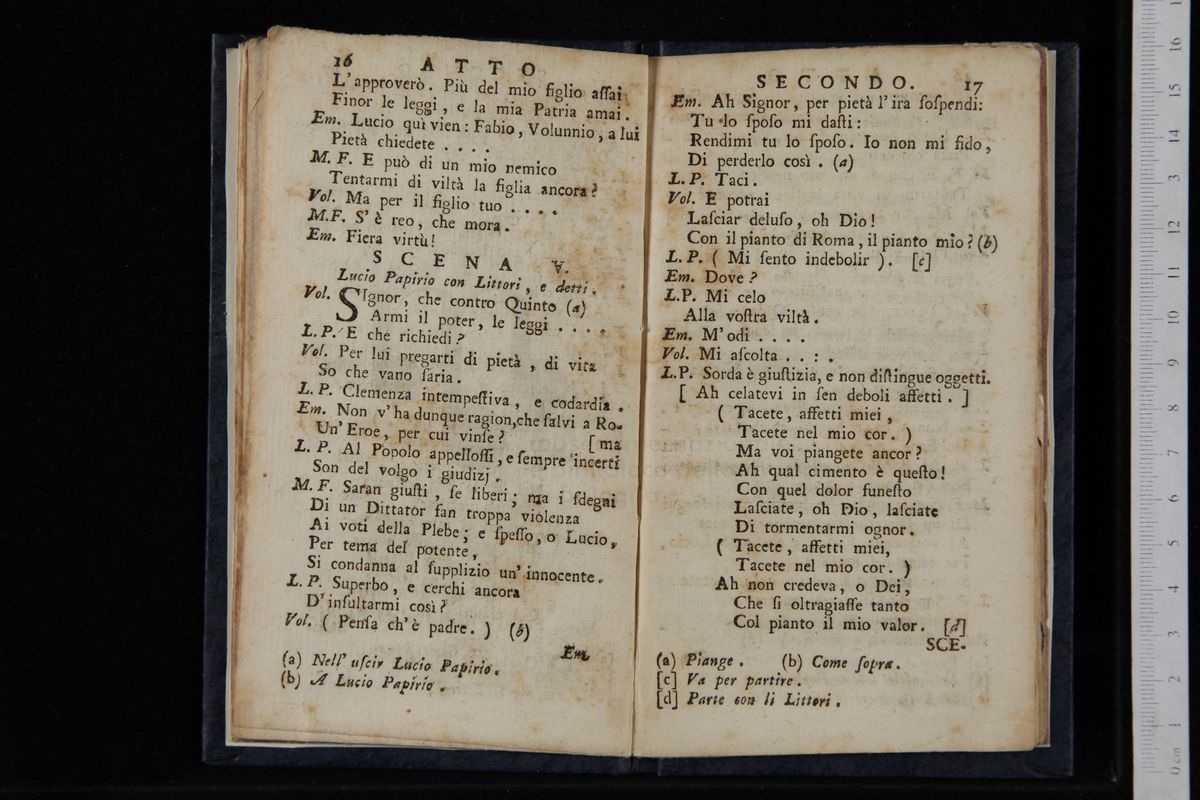 16 ATTO
L'approverò. Più del mio figlio aſſai
Finor le leggi, e la mia Patria amai.
Em. Lucio quì vien: Fabio, Volunnio, a lui
Pietà chiedete . . . .
M. F. E può di un mio nemico
Tentarmi di viltà la figlia ancora?
Vol. Ma per il figlio tuo . . . .
M.F. S'è reo, che mora.
Em. Fiera virtù!
SCENA V.
Lucio Papirio con Littori, e detti.
Vol. SIgnor, che contro Quinto (a)
Armi il poter, le leggi . . . .
L. P. E che richiedi?
Vol. Per lui pregarti di pietà, di vita
So che vano ſaria.
L. P. Clemenza intempeſtiva, e codardia.
Em. Non v'ha dunque ragion, che ſalvi a Ro-
Un'Eroe, per cui vinſe? [ma
L. P. Al Popolo appelloſſi, e ſempre incerti
Son del volgo i giudizj.
M. F. Saran giuſti, ſe liberi; ma i ſdegni
Di un Dittator fan troppa violenza
Ai voti della Plebe; e ſpeſſo, o Lucio,
Per tema del potente,
Si condanna al ſupplizio un'innocente.
L. P. Superbo, e cerchi ancora
D'inſultarmi così?
Vol. ( Penſa ch'è padre. ) (b)
Em.
(a) Nell' uſcir Lucio Papirio.
(b) A Lucio Papirio.
SECONDO. 17
Em. Ah Signor, per pietà l'ira ſoſpendi:
Tu lo ſpoſo mi daſti:
Rendimi tu lo ſpoſo. Io non mi fido,
Di perderlo così. (a)
L. P. Taci.
Vol. E potrai
Laſciar deluſo, oh Dio!
Con il pianto di Roma, il pianto mio? (b)
L. P. ( Mi ſento indebolir ). [c]
Em. Dove?
L.P. Mi celo
Alla voſtra viltà.
Em. M'odi . . . .
Vol. Mi aſcolta . . : .
L.P. Sorda è giuſtizia, e non diſtingue oggetti.
[ Ah celatevi in ſen deboli affetti. ]
( Tacete, affetti miei,
Tacete nel mio cor. )
Ma voi piangete ancor?
Ah qual cimento è queſto!
Con quel dolor funeſto
Laſciate, oh Dio, laſciate
Di tormentarmi ognor.
( Tacete, affetti miei,
Tacete nel mio cor. )
Ah non credeva, o Dei,
Che ſi oltragiaſſe tanto
Col pianto il mio valor. [d]
SCE-
(a) Piange. (b) Come ſopra.
[c] Va per partire.
[d] Parte con li Littori.
0 cm 1 2 3 4 5 6 7 8 9 10 11 12 13 14 15 16